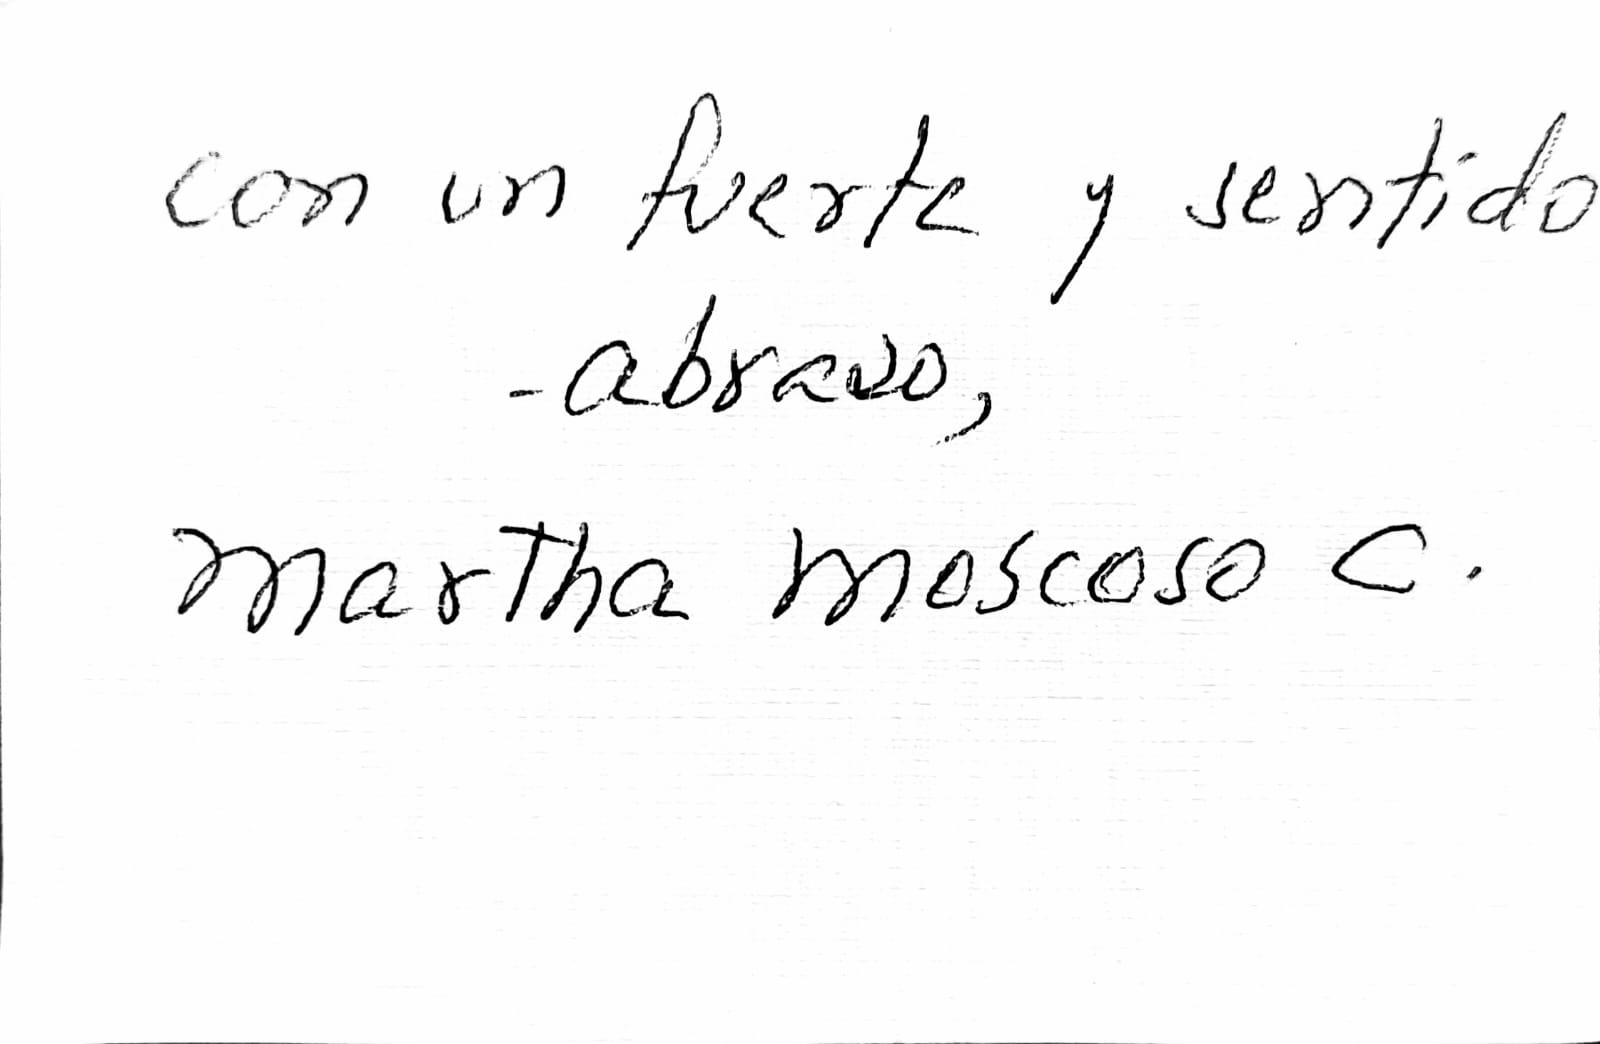 con un fuerte y sentido
-abrazo,
Martha Moscoso C.